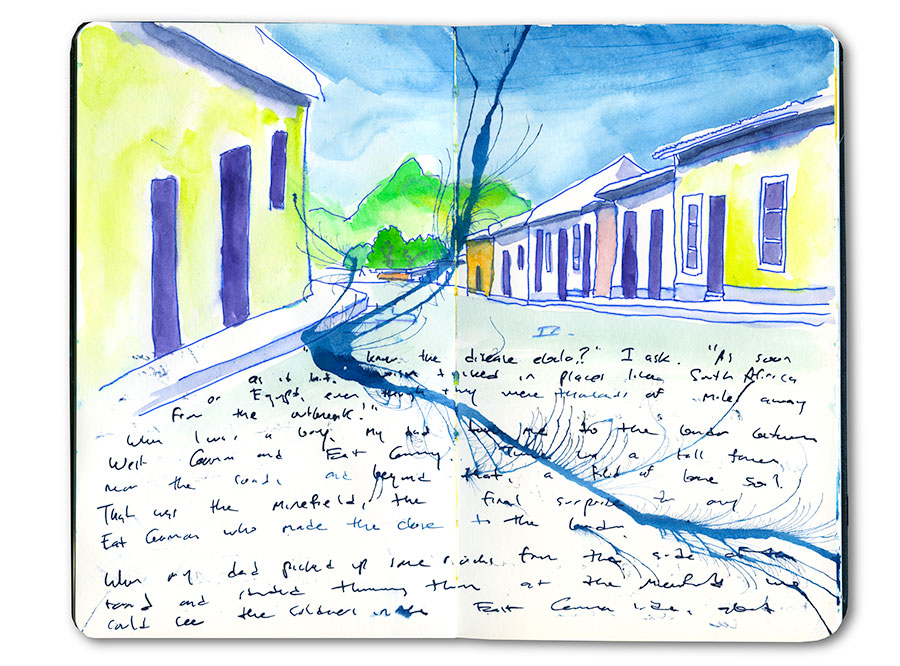 " know the disease ebola?" I ask. "As soon
as it hit. tourism tanked in places like South Africa
or Egypt, even though they were thousands of miles away
from the outbreak!"
When I was a boy, my dad took me to the border between
West German and East Germany. There was a tall fence
near the road, and beyond that, a field of bare soil.
That was the minefield, the final surprise to any
East German who made the close to the border.
When my dad picked up some rocks from the side of the
road and started throwing them at the minefield we
could see the soldiers on the East German side,